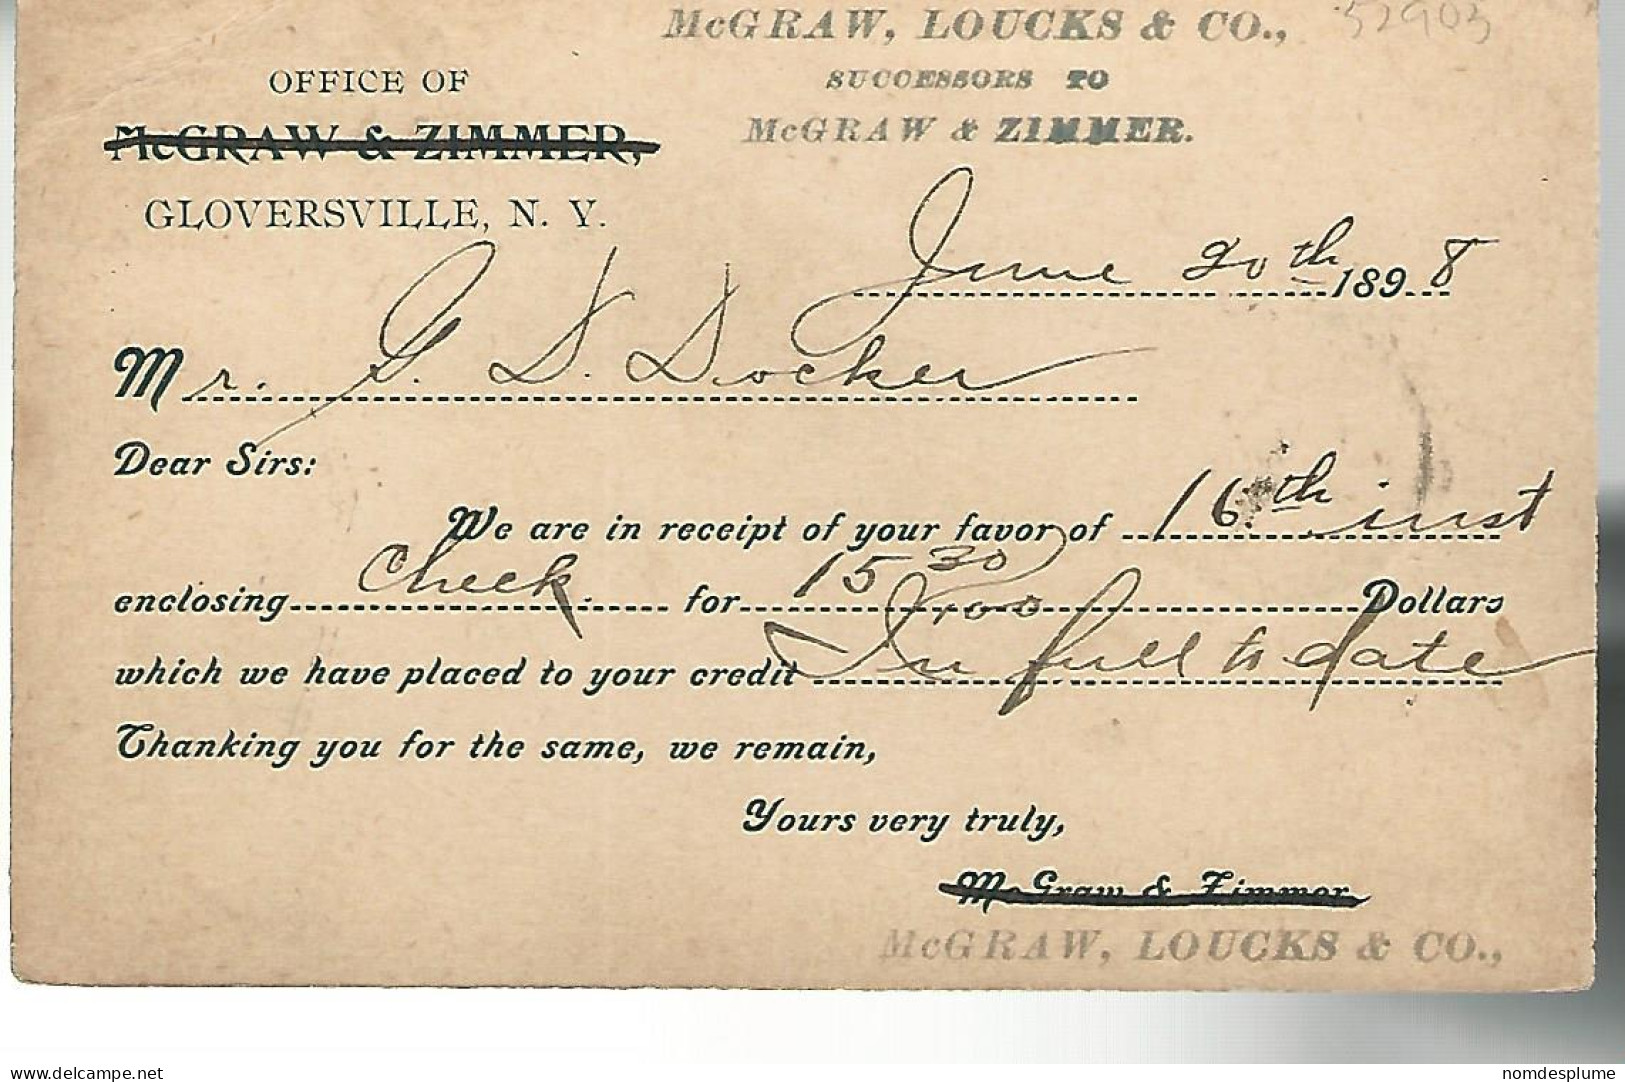 McGRAW, LOUCKS & CO., 52903
SUCCESSORS TO
McGRAW & ZIMMER.
OFFICE OF
McGRAW & ZIMMER,
GLOVERSVILLE, N. Y.
June 20th 1898
Mr. G. D. Docker
Dear Sirs:
We are in receipt of your favor of 16th inst
enclosing check for 15 30/100 Dollars
which we have placed to your credit In full to date
Thanking you for the same, we remain,
Yours very truly,
McGraw & Zimmer
McGRAW, LOUCKS & CO.,
delcampe.net nomdesplume